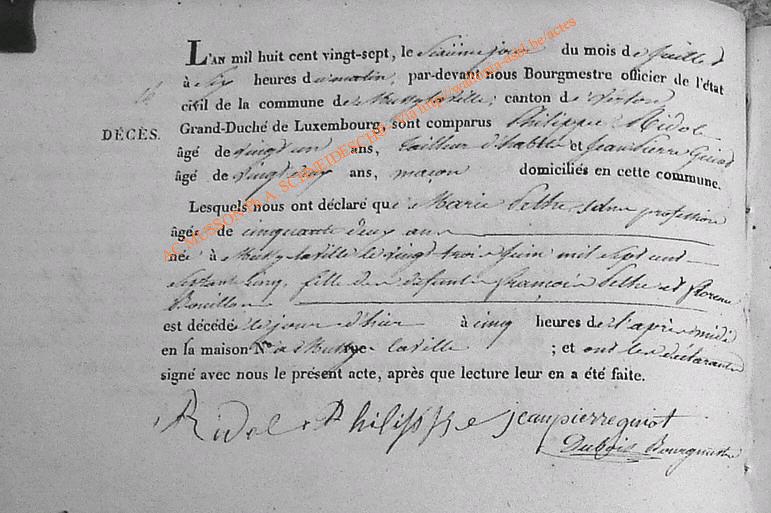 L'AN mil huit cent vingt-sept, le seizième jour du mois de juillet
à six heures du matin, par-devant nous Bourgmestre officier de l'état
civil de la commune de Mussy-la-ville; canton de Virton
DÉCÈS.
Grand-Duché de Luxembourg, sont comparus Philippe Ridol
âgé de vingt un ans, tailleur d'habits et Jean Pierre
âgé de vingt deux ans, maçon domiciliés en cette commune.
Lesquels nous ont déclaré que Marie Pethe, sans profession
âgée de cinquante deux ans
née à Mussy-la-ville le vingt trois juin mil sept cent
soixante cinq, fille des défunts françois Pethe et
est décédé le jour d'hier à cinq heures de l'après midi
en la maison N.º à Mussy la ville ; et ont les déclarants
signé avec nous le présent acte, après que lecture leur en a été faite.
Ridol Philippe jeanpierre
Dubois Bourgmestre
AC MUSSON Ph A. SCHNEIDESCH© Via http://wadeona-asbl.be/actes